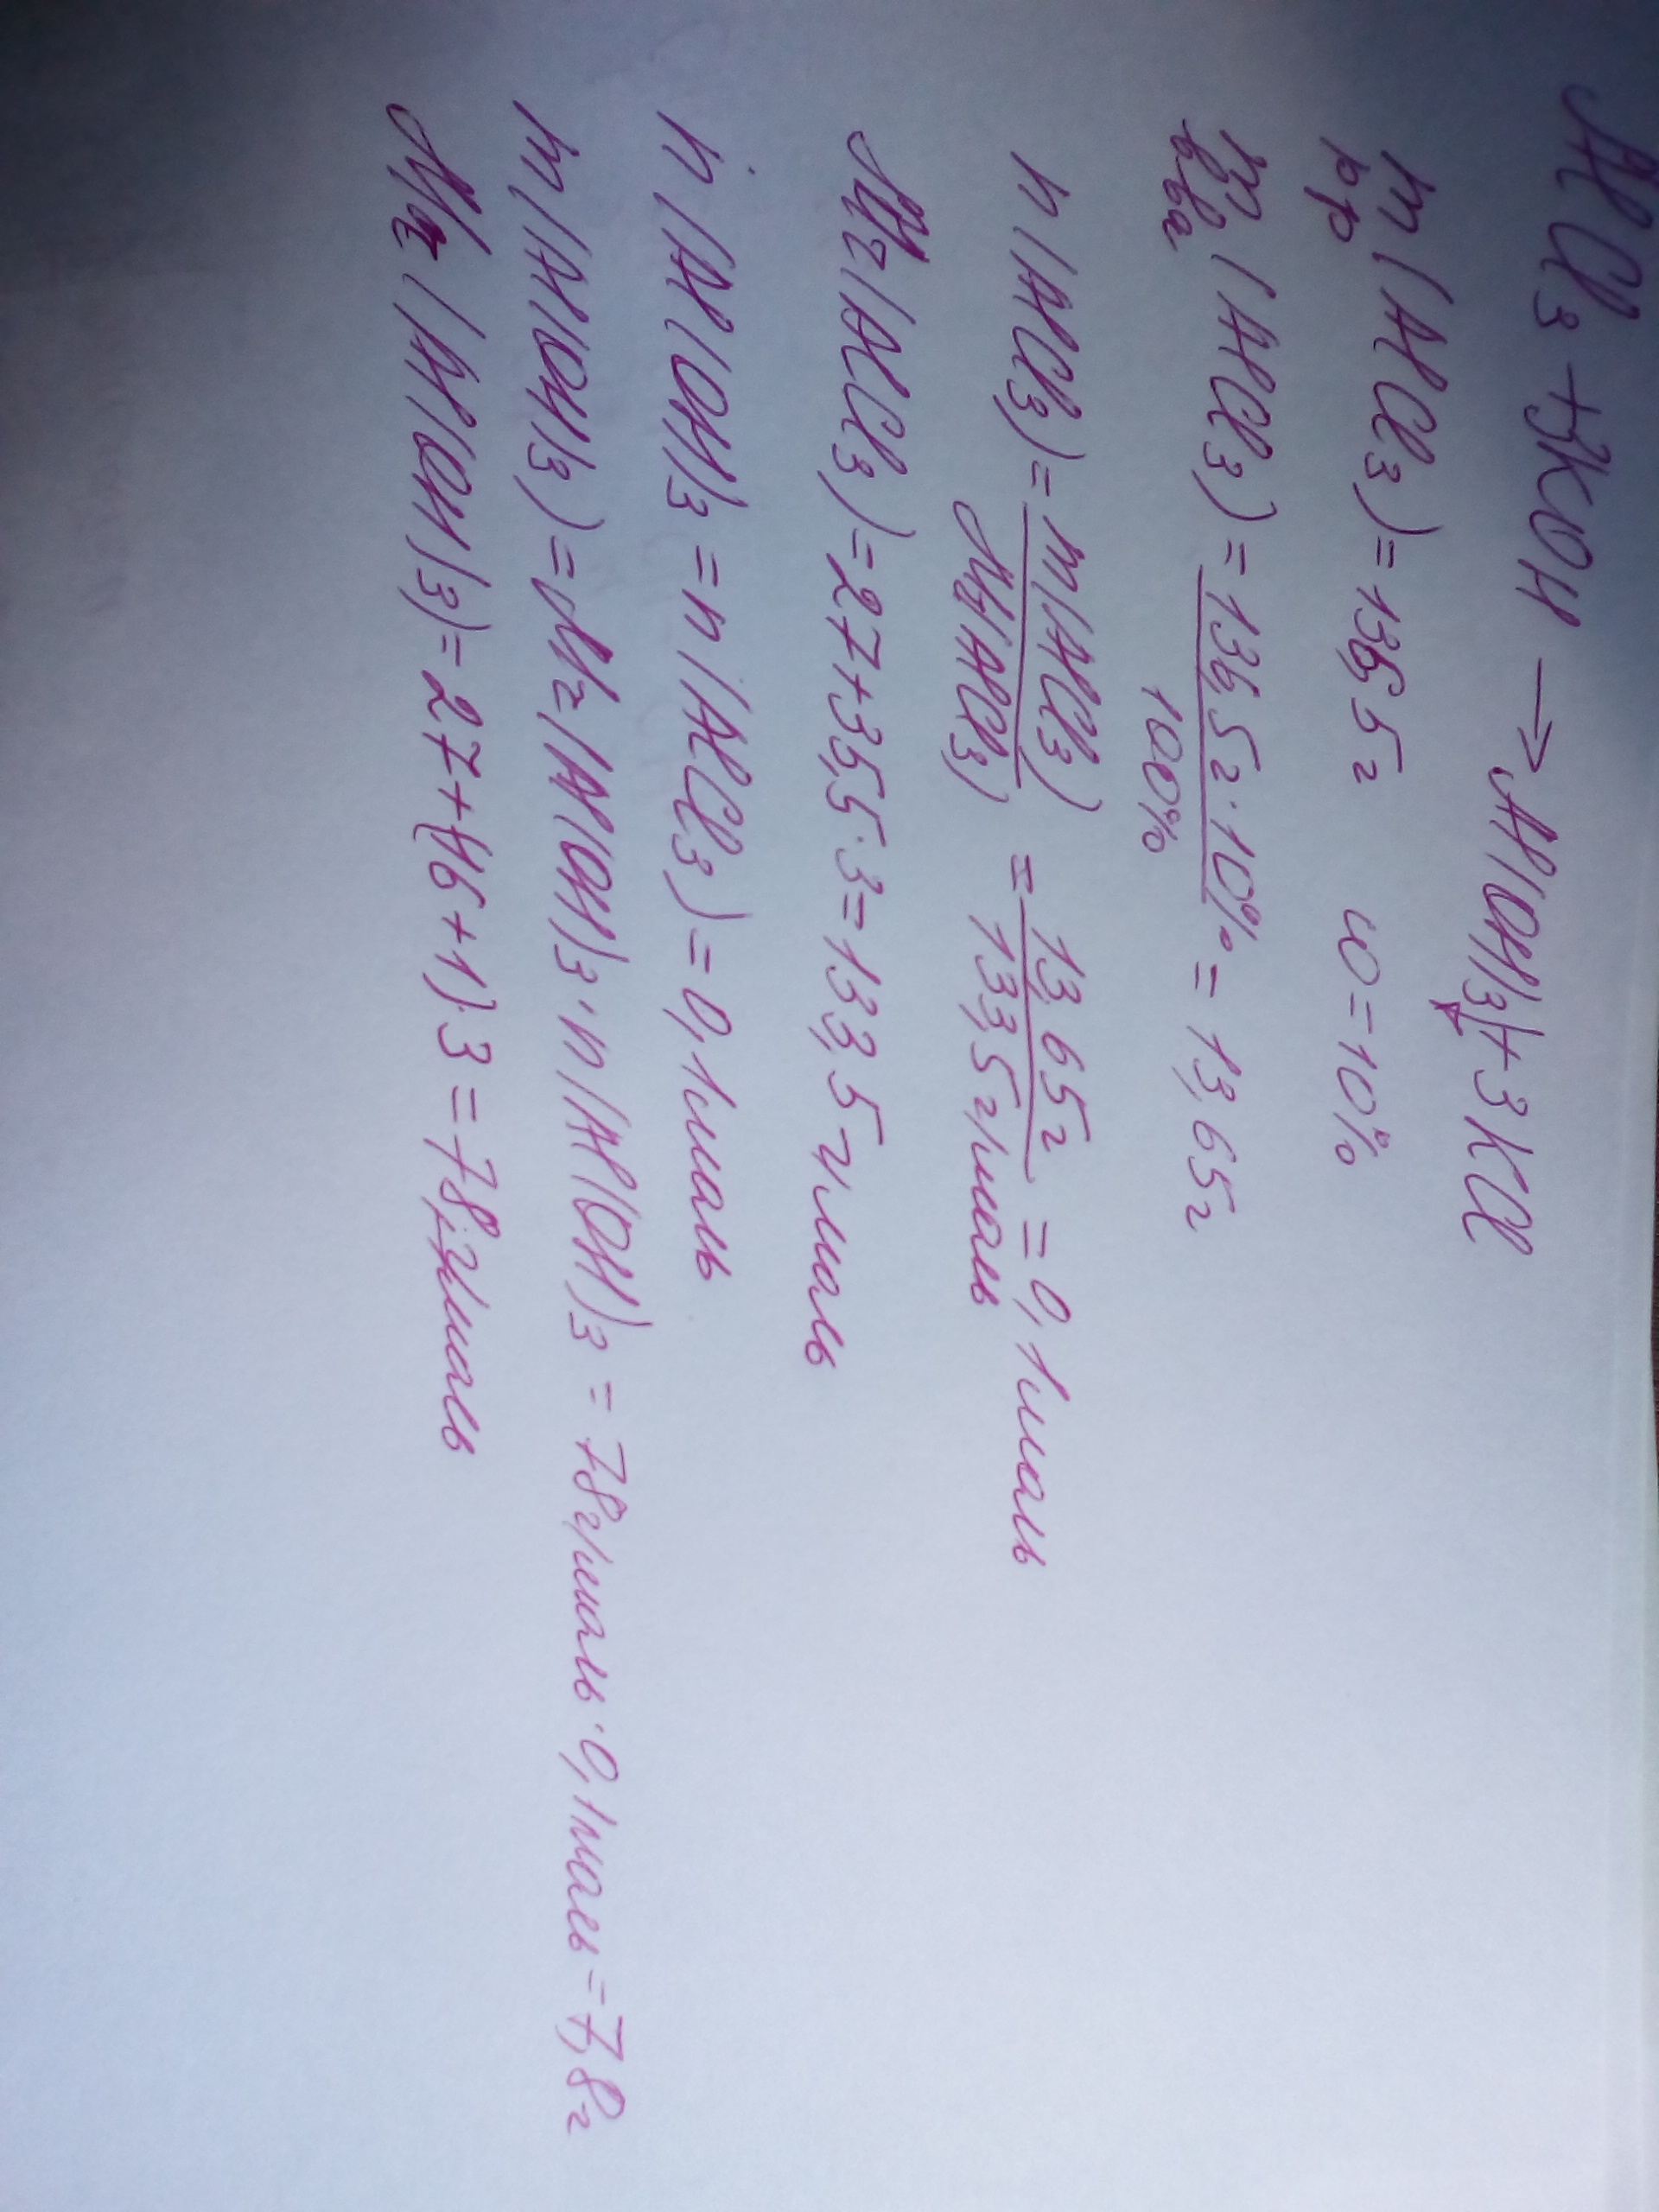 AlCl₃ + 3KOH → Al(OH)₃↓ + 3KCl
m р-р (AlCl₃) = 136,5 г ω = 10%
m в-ва (AlCl₃) = 136,5 г · 10% / 100% = 13,65 г
n (AlCl₃) = m(AlCl₃) / M(AlCl₃) = 13,65 г / 133,5 г/моль = 0,1 моль
Mr (AlCl₃) = 27 + 35,5 · 3 = 133,5 г/моль
n (Al(OH)₃ = n (AlCl₃) = 0,1 моль
m (Al(OH)₃) = Mr (Al(OH)₃ · n (Al(OH)₃ = 78 г/моль · 0,1 моль = 7,8 г
Mr (Al(OH)₃) = 27 + (16 + 1) · 3 = 78 г/моль